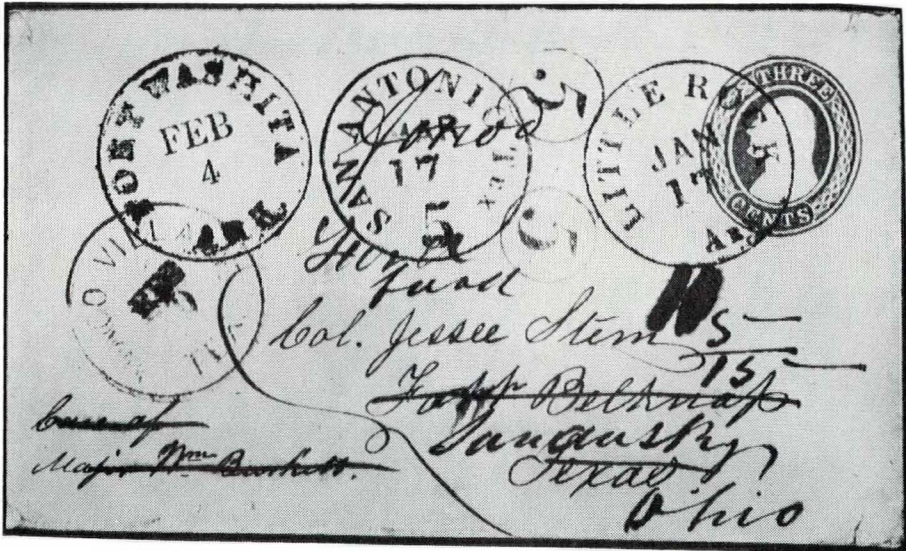 FORT WASHITA
FEB
4
ARK
SAN ANTONIO TEX
17
5
5
5
LITTLE ROCK
JAN
17
Ark
THREE
CENTS
Col. Jessee Stem
5
15
Fort Belknap
Sandusky
Texas
Ohio
Care of
Major Wm Burkett.